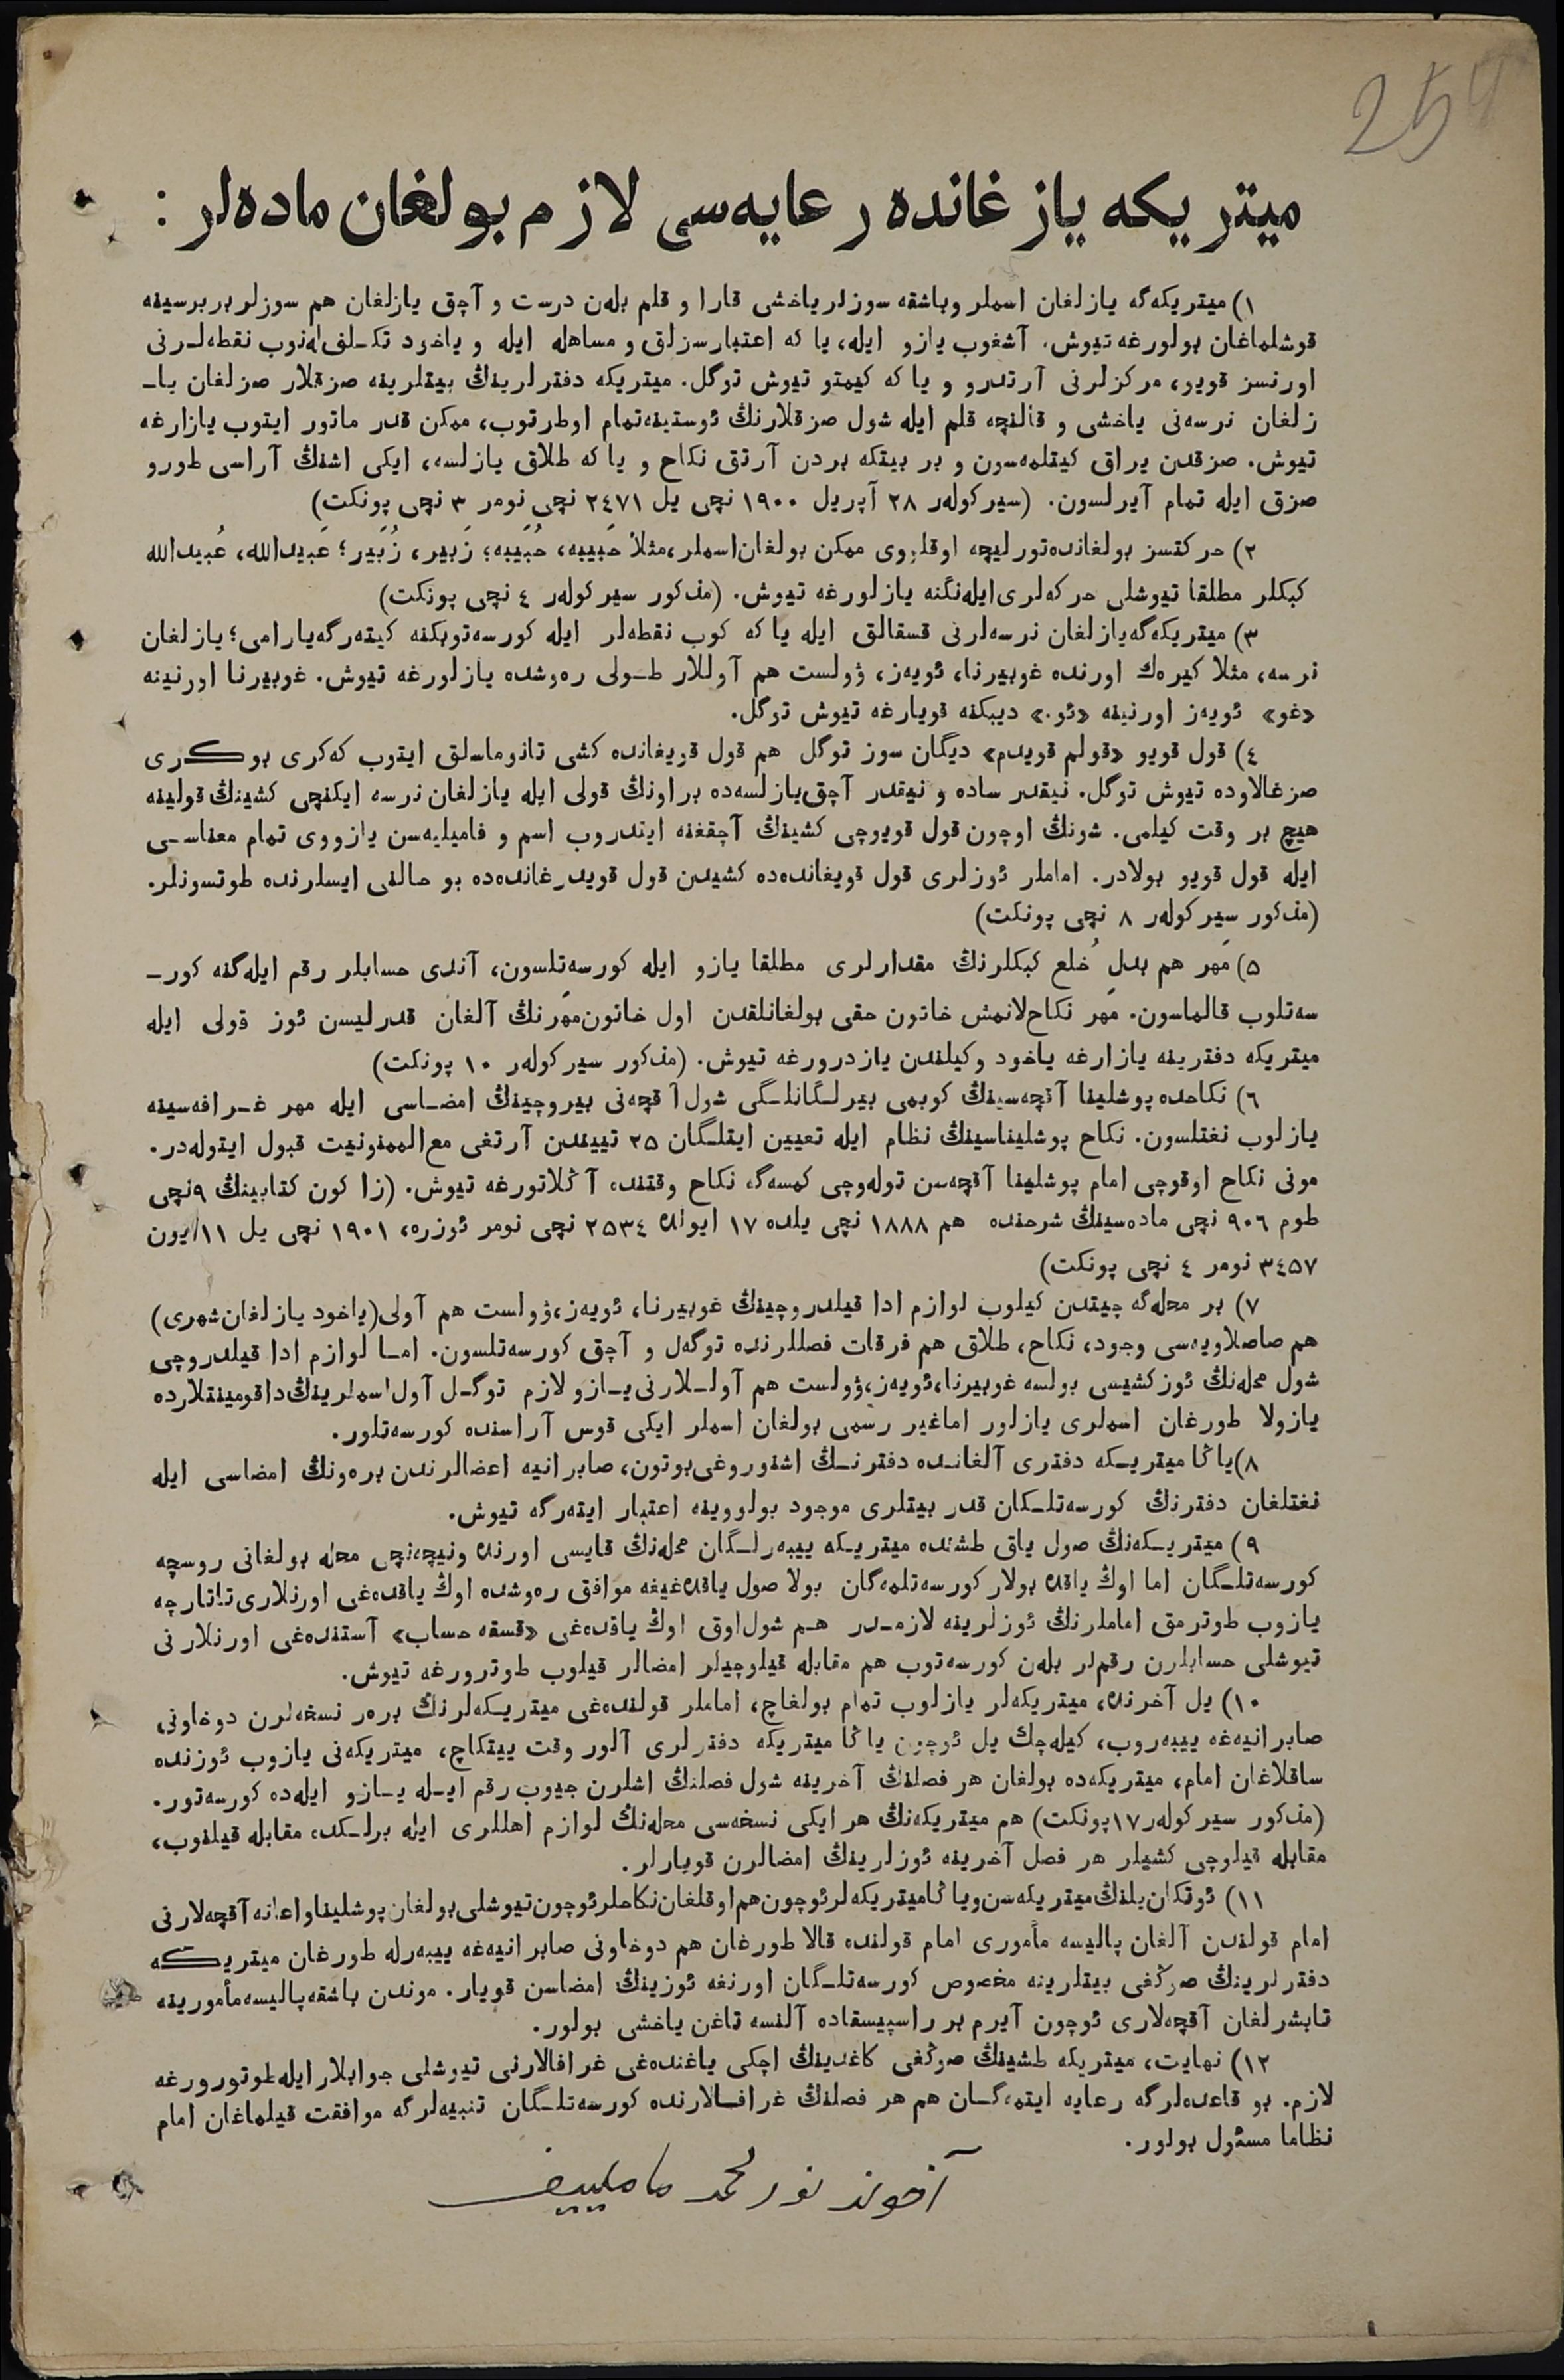 254
ميتريكه يازغانده رعايه‌سى لازم بولغان ماده‌لر :
١) ميتريكه‌گه يازلغان اسملر وباشقه سوزلر ياخشى قارا و قلم بله‌ن درست و آچق يازلغان هم سوزلر بربرسينه
قوشلماغان بولورغه تيوش. آشغوب يازو ايله، يا كه اعتبارسزلق و مساهله ايله و ياخود تكـلف له‌نوب نقطه‌لـرنى
اورنسز قويو، مركزلرنى آرتدرو و يا كه كيمتو تيوش توگل. ميتريكه دفترلرينڭ بيتلرينه صزقلار صزلغان يا‌ـ
زلغان نرسه‌نى ياخشى و قالنچه قلم ايله شول صزقلارنڭ ئوستينه تمام اوطرتوب، ممكن قدر ماتور ايتوب يازارغه
تيوش. صزقدن يراق كيتلمه‌سون و بر بيتكه بردن آرتق نكاح و يا كه طلاق يازلسه، ايكى اشنڭ آراسى طورو
صزق ايله تمام آيرلسون. (سيركوله‌ر ٢٨ آپريل ١٩٠٠ نچى يل ٢٤٧١ نچى نومر ٣ نچى پونكت)
٢) حركتسز بولغانده تورليچه اوقلووى ممكن بولغان اسملر، مثلا حَبيبه، حُبَيبه؛ زَبير، زُبَير؛ عَبيدالله، عُبيدالله
كبكلر مطلقا تيوشلى حركه‌لرى ايله‌نگنه يازلورغه تيوش. (مذكور سيركوله‌ر ٤ نچى پونكت)
٣) ميتريكه‌گه يازلغان نرسه‌لرنى قسقالق ايله يا كه كوب نقطه‌لر ايله كورسه‌توبكنه كيته‌رگه يارامى؛ يازلغان
نرسه، مثلا كيره‌ك اورنده غوبيرنا، ئويه‌ز، ۋولست هم آوللار طـولى ره‌وشده يازلورغه تيوش. غوبيرنا اورنينه
«غو» ئويه‌ز اورنينه «ئو.» ديبكنه قويارغه تيوش توگل.
٤) قول قويو «قولم قويدم» ديگان سوز توگل هم قول قويغانده كشى تانوماسلق ايتوب كه‌كرى بوكـرى
صزغالاوده تيوش توگل. نيقدر ساده و نيقدر آچق يازلسه‌ده براونڭ قولى ايله يازلغان نرسه ايكنچى كشينڭ قولينه
هيچ بر وقت كيلمى. شونڭ اوچون قول قويوچى كشينڭ آچقغنه ايتدروب اسم و فاميليه‌سن يازووى تمام معناسـى
ايله قول قويو بولادر. اماملر ئوزلرى قول قويغانده‌ده كشيدن قول قويدرغانده‌ده بو حالنى ايسلرنده طوتسونلر.
(مذكور سيركوله‌ر ٨ نچى پونكت)
٥) مَهر هم بدلِ خُلع كبكلرنڭ مقدارلرى مطلقا يازو ايله كورسه‌تلسون، آندى حسابلر رقم ايله‌گنه كور‌ـ
سه‌تلوب قالماسون. مَهر نكاح‌لانمش خاتون حقى بولغانلقدن اول خاتون مَهرنڭ آلغان قدرليسن ئوز قولى ايله
ميتريكه دفترينه يازارغه ياخود وكيلندن يازدرورغه تيوش. (مذكور سيركوله‌ر ١٠ پونكت)
٦) نكاحده پوشلينا آقچه‌سينڭ كوبمى بيرلـگانلـگى شول آقچه‌نى بيروچينڭ امضـاسى ايله مهر غـرافه‌سينه
يازلوب نغتلسون. نكاح پوشليناسينڭ نظام ايله تعيين ايتلـگان ٢٥ تييندن آرتغى مع الممنونيت قبول ايتوله‌در.
مونى نكاح اوقوچى امام پوشلينا آقچه‌سن توله‌وچى كمسه‌گه نكاح وقتنده آڭلاتورغه تيوش. (زاكون كتابينڭ ٩نچى
طوم ٩٠٦ نچى ماده‌سينڭ شرحنده هم ١٨٨٨ نچى يلده ١٧ ايولده ٢٥٣٤ نچى نومر ئوزره، ١٩٠١ نچى يل ١١ ايون
٣٤٥٧ نومر ٤ نچى پونكت)
٧) بر محله‌گه چيتدن كيلوب لوازم ادا قيلدروچينڭ غوبيرنا، ئويه‌ز، ۋولست هم آولى (ياخود يازلغان شهرى)
هم صاصلاويه‌سى وجود، نكاح، طلاق هم فرقات فصللرنده توگه‌ل و آچق كورسه‌تلسون. امـا لوازم ادا قيلدروچى
شول محله‌نڭ ئوز كشيسى بولسه غوبيرنا، ئويه‌ز، ۋولست هم آولـلارنى يـازو لازم توگـل آول اسملرينڭ داقومينتلارده
يازولا طورغان اسملرى يازلور اماغير رسمى بولغان اسملر ايكى قوس آراسنده كورسه‌تلور.
٨) ياڭا ميتريـكه دفترى آلغانـده دفترنـڭ اشنوروغى بوتون، صابرانيه اعضالرندن بره‌ونڭ امضاسى ايله
نغتلغان دفترنڭ كورسه‌تلـكان قدر بيتلرى موجود بولووينه اعتبار ايته‌رگه تيوش.
٩) ميتريـكه‌نڭ صول ياق طشنده ميتريـكه ييبه‌رلـگان محله‌نڭ قايسى اورنده ونيچه‌نچى محله بولغانى روسچه
كورسه‌تلـگان اما اوڭ ياقده بولار كورسه‌تلمه‌گان بولا صول ياقده‌غيغه موافق ره‌وشده اوڭ ياقده‌غى اورنلارى تاتارچه
يازوب طوترمق اماملرنڭ ئوزلرينه لازمـدر هـم شول اوق اوڭ ياقده‌غى «قسقه حساب» آستنده‌غى اورنلارنى
تيوشلى حسابلرن رقم‌لر بله‌ن كورسه‌توب هم مقابله قيلوچيلر امضالر قيلوب طوترورغه تيوش.
١٠) يل آخرنده، ميتريكه‌لر يازلوب تمام بولغاچ، اماملر قولنده‌غى ميتريـكه‌لرنڭ بره‌ر نسخه‌لرن دوخاونى
صابرانيه‌غه ييبه‌روب، كيله‌چك يل ئوچون ياڭا ميتريكه دفترلرى آلور وقت ييتكاچ، ميتريكه‌نى يازوب ئوزنده
ساقلاغان امام، ميتريكه‌ده بولغان هر فصلنڭ آخرينه شول فصلنڭ اشلرن جيوب رقم ايـله يـازو ايله‌ده كورسه‌تور.
(مذكور سيركوله‌ر ١٧ پونكت) هم ميتريكه‌نڭ هر ايكى نسخه‌سى محله‌نڭ لوازم اهللرى ايله برلـكده مقابله قيلنوب،
مقابله قيلوچى كشيلر هر فصل آخرينه ئوزلرينڭ امضالرن قويارلر.
١١) ئوتكان يلنڭ ميتريكه‌سن وياڭا ميتريكه‌لر ئوچون هم اوقلغان نكاحلر ئوچون تيوشلى بولغان پوشلينا و اعانه آقچه‌لارنى
امام قولندن آلغان پاليسه مأمورى امام قولنده قالا طورغان هم دوخاونى صابرانيه‌غه ييبه‌رله طورغان ميتريـكه
دفترلرينڭ صوڭغى بيتلرينه مخصوص كورسه‌تلـگان اورنغه ئوزينڭ امضاسن قويار. موندن باشقه پاليسه مأمورينه
تابشرلغان آقچه‌لارى ئوچون آيرم بر راسپيسقاده آلنسه تاغن ياخشى بولور.
١٢) نهايت، ميتريكه طشينڭ صوڭغى كاغدينڭ اچكى ياغنده‌غى غرافالارنى تيوشلى جوابلار ايله طوتورورغه
لازم. بو قاعده‌لرگه رعايه ايتمه‌گـان هم هر فصلنڭ غرافـالارنده كورسه‌تلـگان تنبيه‌لرگه موافقت قيلماغان امام
نظاما مسئول بولور.
آخوند نورمحمد مامليیف